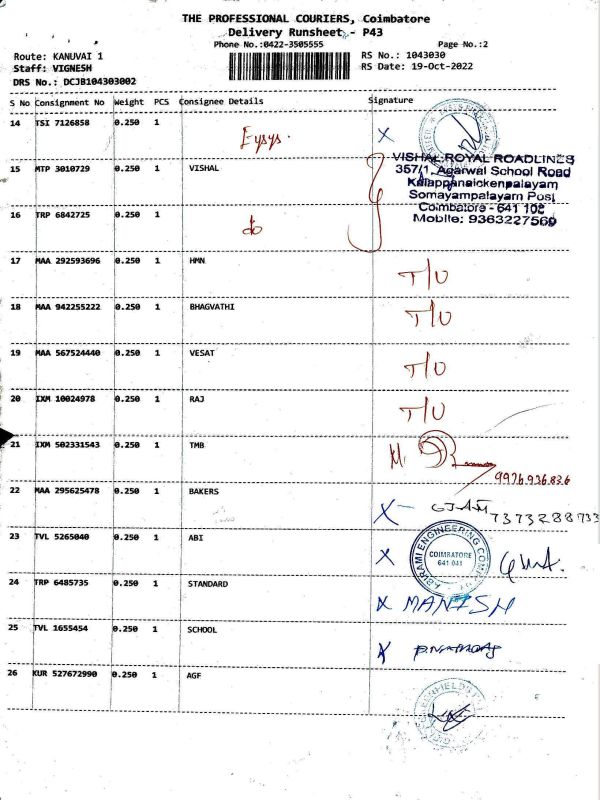 THE PROFESSIONAL COURIERS, Coimbatore
Delivery Runsheet - P43
Phone No.:0422-3505555 Page No.:2
Route: KANUVAI 1 RS No.: 1043030
Staff: VIGNESH RS Date: 19-Oct-2022
DRS No.: DCJB104303002
S No Consignment No Weight PCS Consignee Details Signature
14 TSI 7126858 0.250 1
15 MTP 3010729 0.250 1 VISHAL
VISHAL ROYAL ROADLINES
357/1, Agarwal School Road
Kalappanaickenpalayam
Somayampalayam Post
Coimbatore - 641 108
Mobile: 9363227569
16 TRP 6842725 0.250 1 do
17 MAA 292593696 0.250 1 HMN T/U
18 MAA 942255222 0.250 1 BHAGVATHI T/U
19 MAA 567524440 0.250 1 VESAT T/U
20 IXM 10024978 0.250 1 RAJ T/U
21 IXM 502331543 0.250 1 TMB M.
9976936836
22 MAA 295625478 0.250 1 BAKERS X
7373288733
23 TVL 5265040 0.250 1 ABI X
ABIRAMI ENGINEERING COMPANY
COIMBATORE
641 041
24 TRP 6485735 0.250 1 STANDARD X MANISH
25 TVL 1655454 0.250 1 SCHOOL X
26 KUR 527672990 0.250 1 AGF